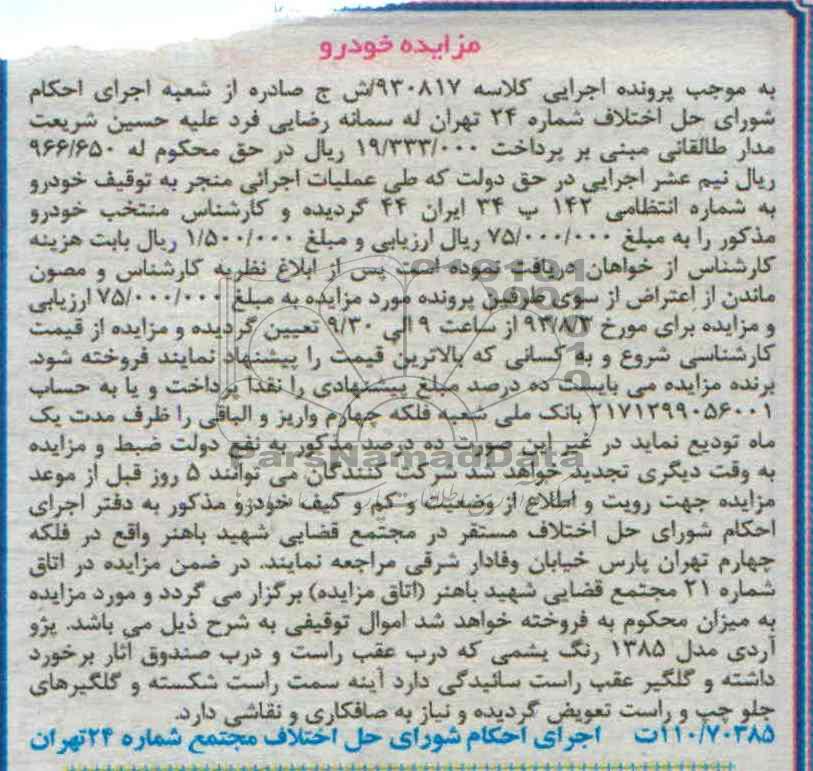 مزایده خودرو
به موجب پرونده اجرایی کلاسه ۹۳۰۸۱۷/ش ج صادره از شعبه اجرای احکام
شورای حل اختلاف شماره ۲۴ تهران له سمانه رضایی فرد علیه حسین شریعت
مدار طالقانی مبنی بر پرداخت ۱۹/۳۳۳/۰۰۰ ریال در حق محکوم له ۹۶۶/۶۵۰
ریال نیم عشر اجرایی در حق دولت که طی عملیات اجرائی منجر به توقیف خودرو
به شماره انتظامی ۱۴۲ ب ۳۴ ایران ۴۴ گردیده و کارشناس منتخب خودرو
مذکور را به مبلغ ۷۵/۰۰۰/۰۰۰ ریال ارزیابی و مبلغ ۱/۵۰۰/۰۰۰ ریال بابت هزینه
کارشناس از خواهان دریافت نموده است پس از ابلاغ نظریه کارشناس و مصون
ماندن از اعتراض از سوی طرفین پرونده مورد مزایده به مبلغ ۷۵/۰۰۰/۰۰۰ ارزیابی
و مزایده برای مورخ ۹۳/۸/۳ از ساعت ۹ الی ۹/۳۰ تعیین گردیده و مزایده از قیمت
کارشناسی شروع و به کسانی که بالاترین قیمت را پیشنهاد نمایند فروخته شود.
برنده مزایده می بایست ده درصد مبلغ پیشنهادی را نقدا پرداخت و یا به حساب
۲۱۷۱۲۹۹۰۵۶۰۰۱ بانک ملی شعبه فلکه چهارم واریز و الباقی را ظرف مدت یک
ماه تودیع نماید در غیر این صورت ده درصد مذکور به نفع دولت ضبط و مزایده
به وقت دیگری تجدید خواهد شد شرکت کنندگان می توانند ۵ روز قبل از موعد
مزایده جهت رویت و اطلاع از وضعیت و کم و کیف خودرو مذکور به دفتر اجرای
احکام شورای حل اختلاف مستقر در مجتمع قضایی شهید باهنر واقع در فلکه
چهارم تهران پارس خیابان وفادار شرقی مراجعه نمایند. در ضمن مزایده در اتاق
شماره ۲۱ مجتمع قضایی شهید باهنر (اتاق مزایده) برگزار می گردد و مورد مزایده
به میزان محکوم به فروخته خواهد شد اموال توقیفی به شرح ذیل می باشد. پژو
آردی مدل ۱۳۸۵ رنگ یشمی که درب عقب راست و درب صندوق آثار برخورد
داشته و گلگیر عقب راست سائیدگی دارد آینه سمت راست شکسته و گلگیرهای
جلو چپ و راست تعویض گردیده و نیاز به صافکاری و نقاشی دارد.
۱۱۰/۷۰۳۸۵ت اجرای احکام شورای حل اختلاف مجتمع شماره ۲۴تهران
ParsNamadData